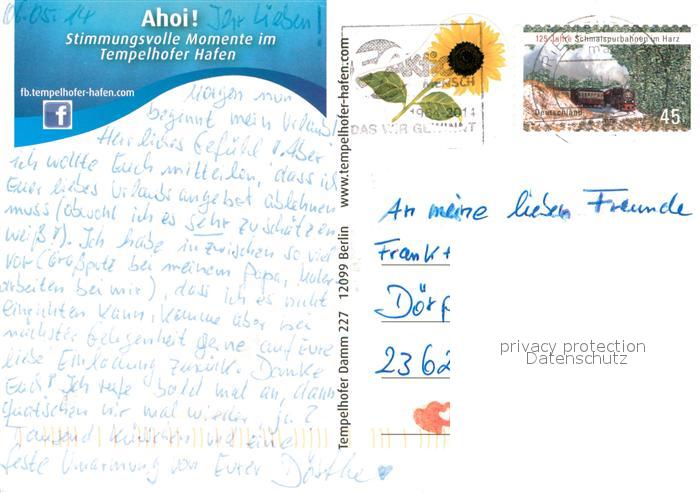 06.05.14
Ihr Lieben!
Ahoi!
Stimmungsvolle Momente im
Tempelhofer Hafen
fb.tempelhofer-hafen.com
f
Morgen nun
beginnt mein Urlaub!
Herrliches Gefühl! Aber
ich wollte Euch mitteilen, dass ich
Euer liebes Urlaubsangebot ablehnen
muss (obwohl ich es sehr zu schätzen
weiß!). Ich habe inzwischen so viel
vor (Großputz bei meinem Papa, Maler-
arbeiten bei mir), dass ich es nicht
einrichten kann, komme aber bei
nächster Gelegenheit gerne auf Eure
liebe Einladung zurück. Danke
Euch! Ich rufe bald mal an, dann
quatschen wir mal wieder, ja?
Tausend Küsschen und eine
feste Umarmung von Eurer Dörthe
Tempelhofer Damm 227 12099 Berlin www.tempelhofer-hafen.com
Aktion
MENSCH
1964-2014
DAS WIR GEWINNT
125 Jahre Schmalspurbahnen im Harz
Deutschland
45
An meine lieben Freunde
Frank +
Dörp
2362
privacy protection
Datenschutz